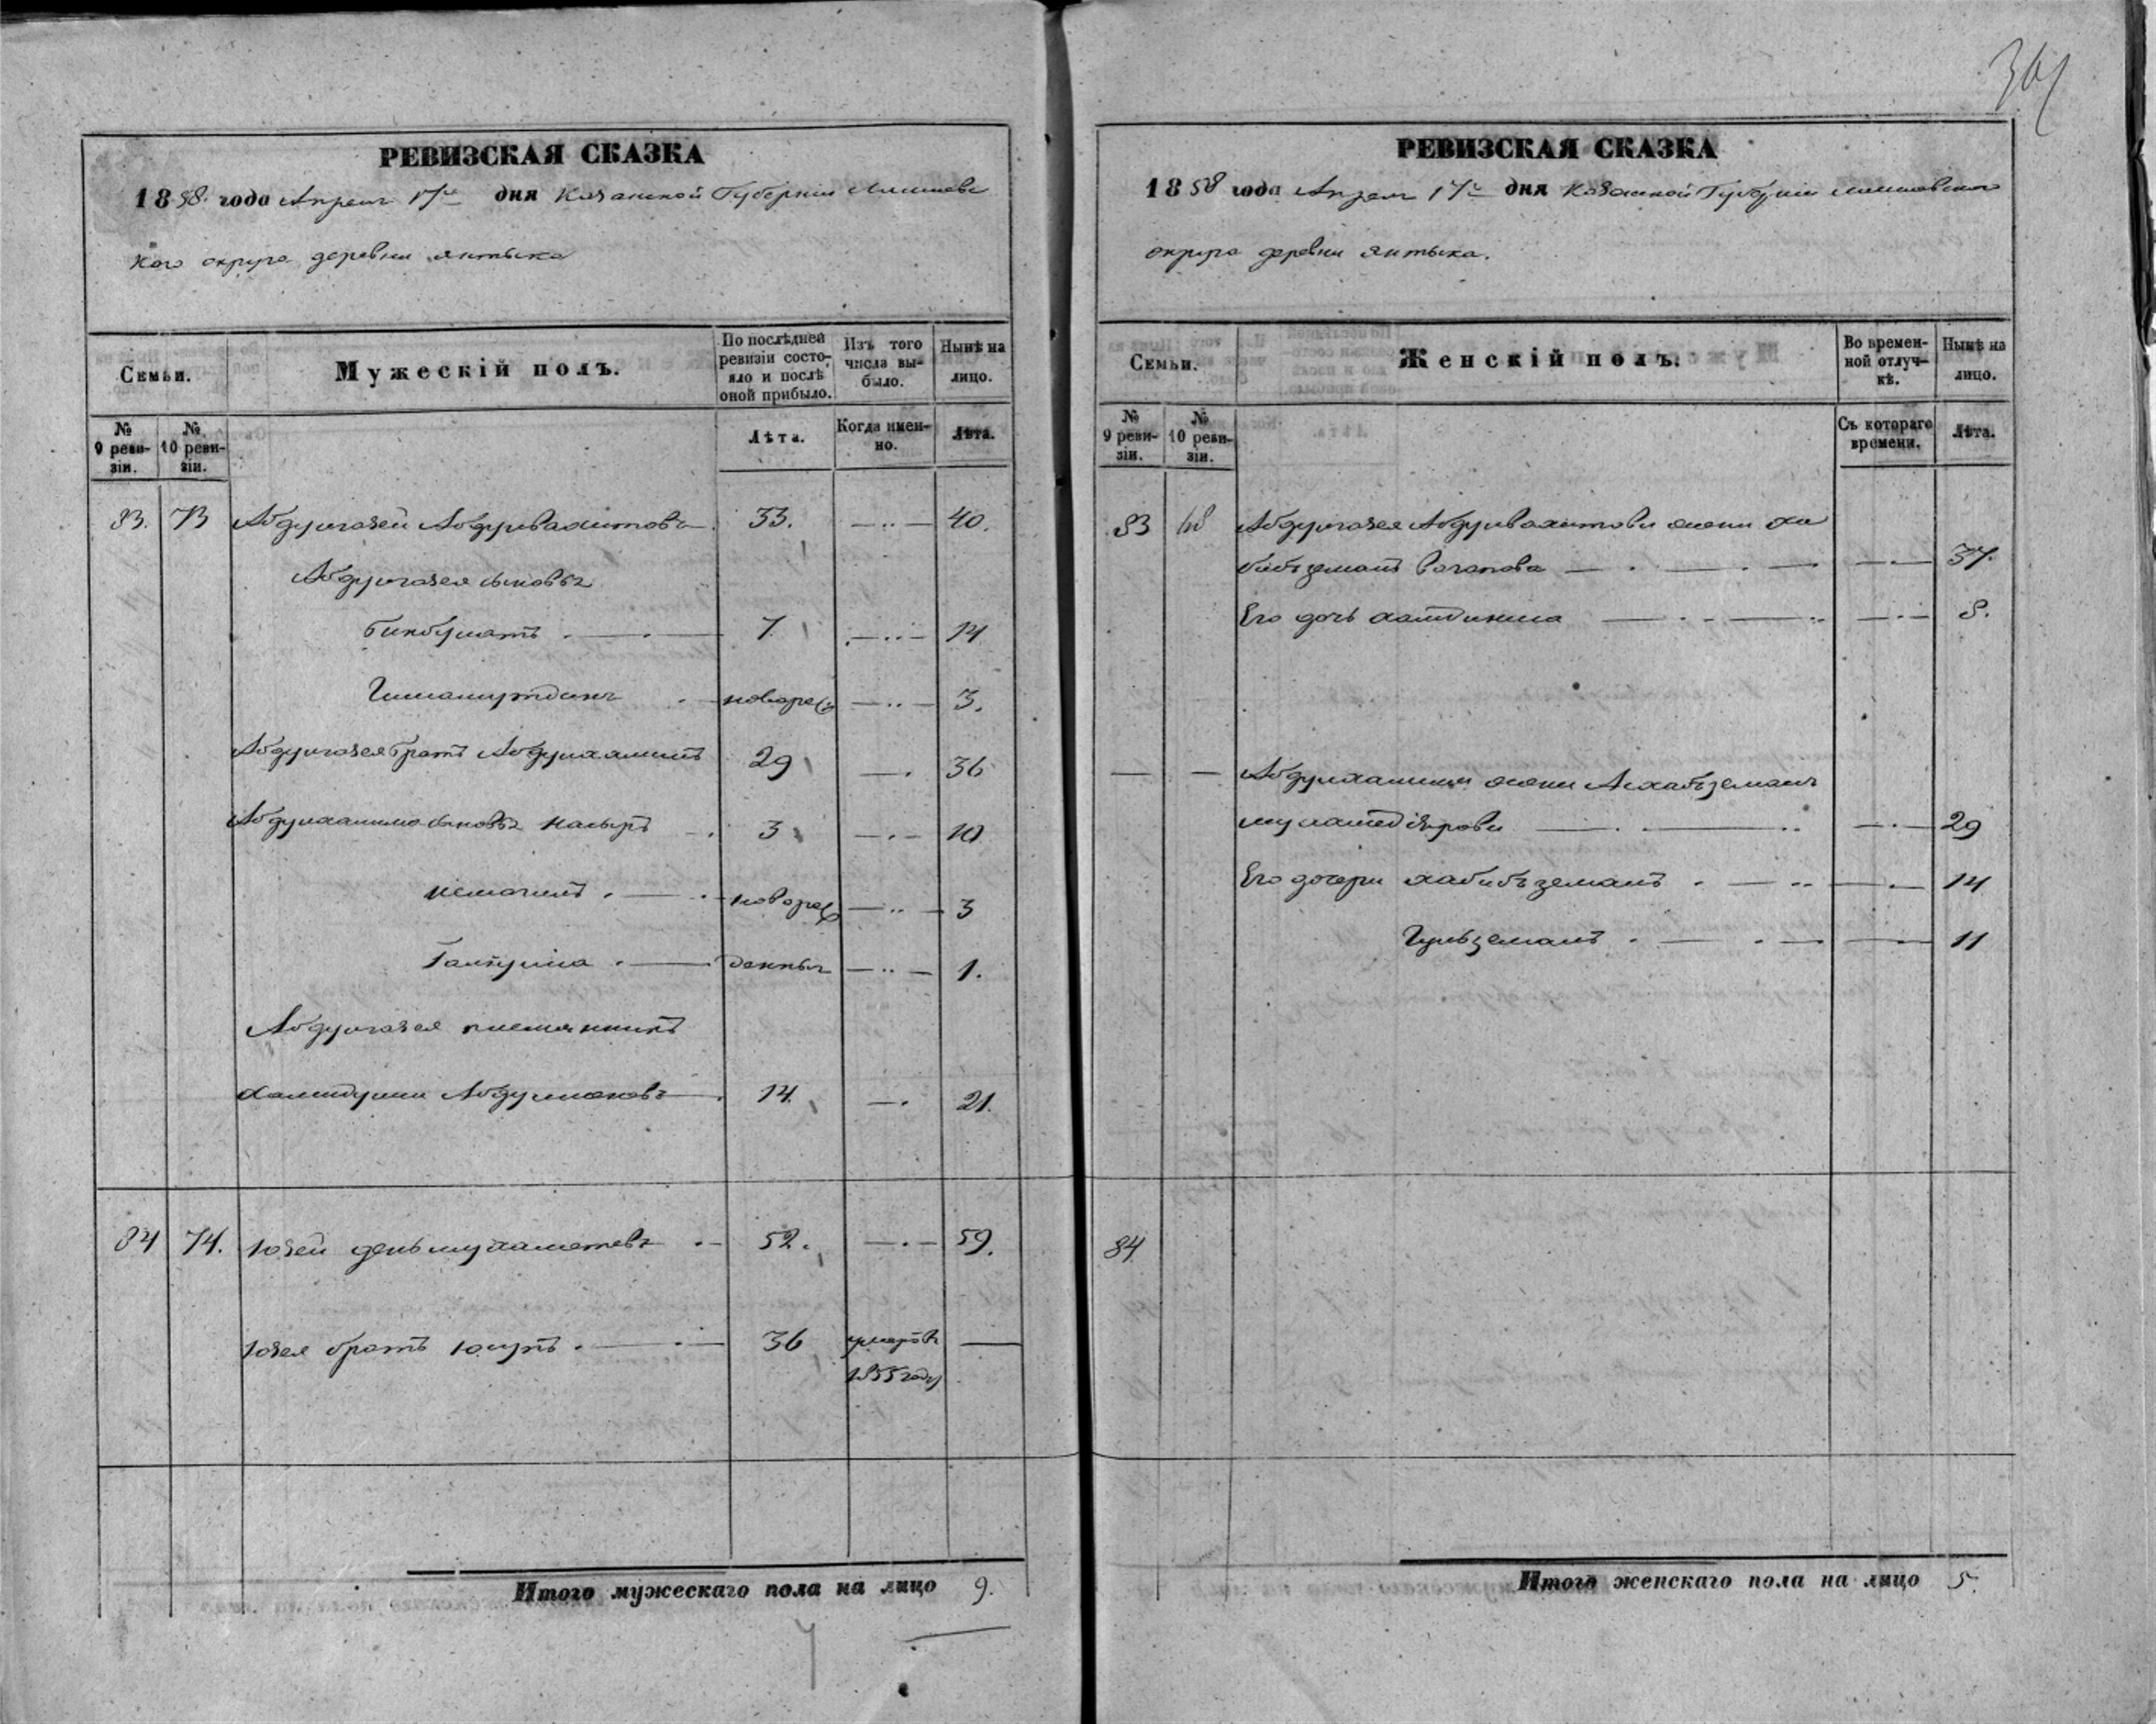 РЕВИЗСКАЯ СКАЗКА
1858 года Апреля 17го дня Казанской Губерніи Мамышевс
каго округа деревни янтыка
Семьи.
Мужескій полъ.
По послѣдней ревизіи состояло и послѣ оной прибыло.
Изъ того числа выбыло.
Нынѣ на лицо.
№ 9 ревизіи.
№ 10 ревизіи.
Лѣта.
Когда именно.
Лѣта.
83. 73 Абдулгазей Абдулвахитовъ 33. 40.
Абдулгазея сыновья
Бикбулатъ 7. 14
Гимашутдинъ новорож 3.
Абдулгазея братъ Абдулхалимъ 29 36
Абдулхалима сыновья Насыръ 3 10
Исмагилъ новорож 3
Галіулла 1.
Абдулгазея племянникъ
Хамидулла 14. 21.
84 74. Юзей деньмухаметевъ 52. 59.
Юзея братъ 36 умеръ въ
1855 году
Итого мужескаго пола на лицо 9.
РЕВИЗСКАЯ СКАЗКА
1858 года Апреля 17го дня Казанской Губерніи
округа деревни янтыка.
Семьи.
Женскій полъ.
Во временной отлучкѣ.
Нынѣ на лицо.
№ 9 ревизіи.
№ 10 ревизіи.
Съ котораго времени.
Лѣта.
83 Абдулгазея Абдулвахитова жена Ха
бибземалъ Вагапова 37.
Его дочь 8.
Абдулхалима жена
29
Его дочери хабибъземалъ 14
Гульземалъ 11
84
Итого женскаго пола на лицо 5.